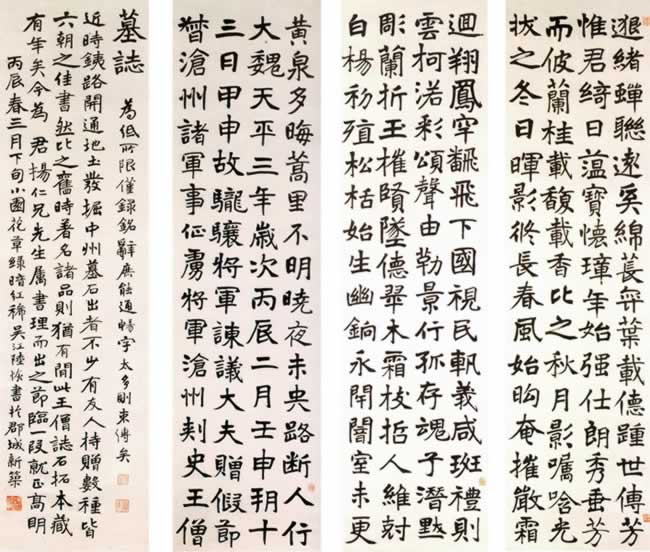 遐緒蟬聯遼矣綿萇弈葉載德踵世傳芳
惟君綺日蕰寶懷璋年始强仕朗秀垂芳
而彼蘭桂載馥載香比之秋月影嘱唅光
拔之冬日暉影終長春風始昫奄摧嚴霜
迴翔鳳穴翻飛下國視民軌義咸班禮則
雲柯渃彩頌聲由勒景行孤存魂子潛黙
彫蘭折玉摧賢墜德翠木霜枝哲人維尅
白楊初殖松栝始生幽銷永閇闇室未更
黄泉多晦蒿里不明曉夜未央路断人行
大魏天平三年歲次丙辰二月壬申朔十
三日甲申故驪驤將軍諫議大夫贈假節
督滄州諸軍事征虜將軍滄州刾史王僧
墓誌
為低所限僅錄銘辭庶能通暢字太多則束縛矣
近時銕路開通地土發掘中州墓石出者不少有友人持贈數種皆
六朝之佳書然比之舊時著名諸品則猶有間此王僧誌石拓本藏
有年矣今為 君揚仁兄先生屬書理而出之節臨一段就正髙明
丙辰春三月下旬小園花章綠暗紅稀吳江陸恢書於郡城新築